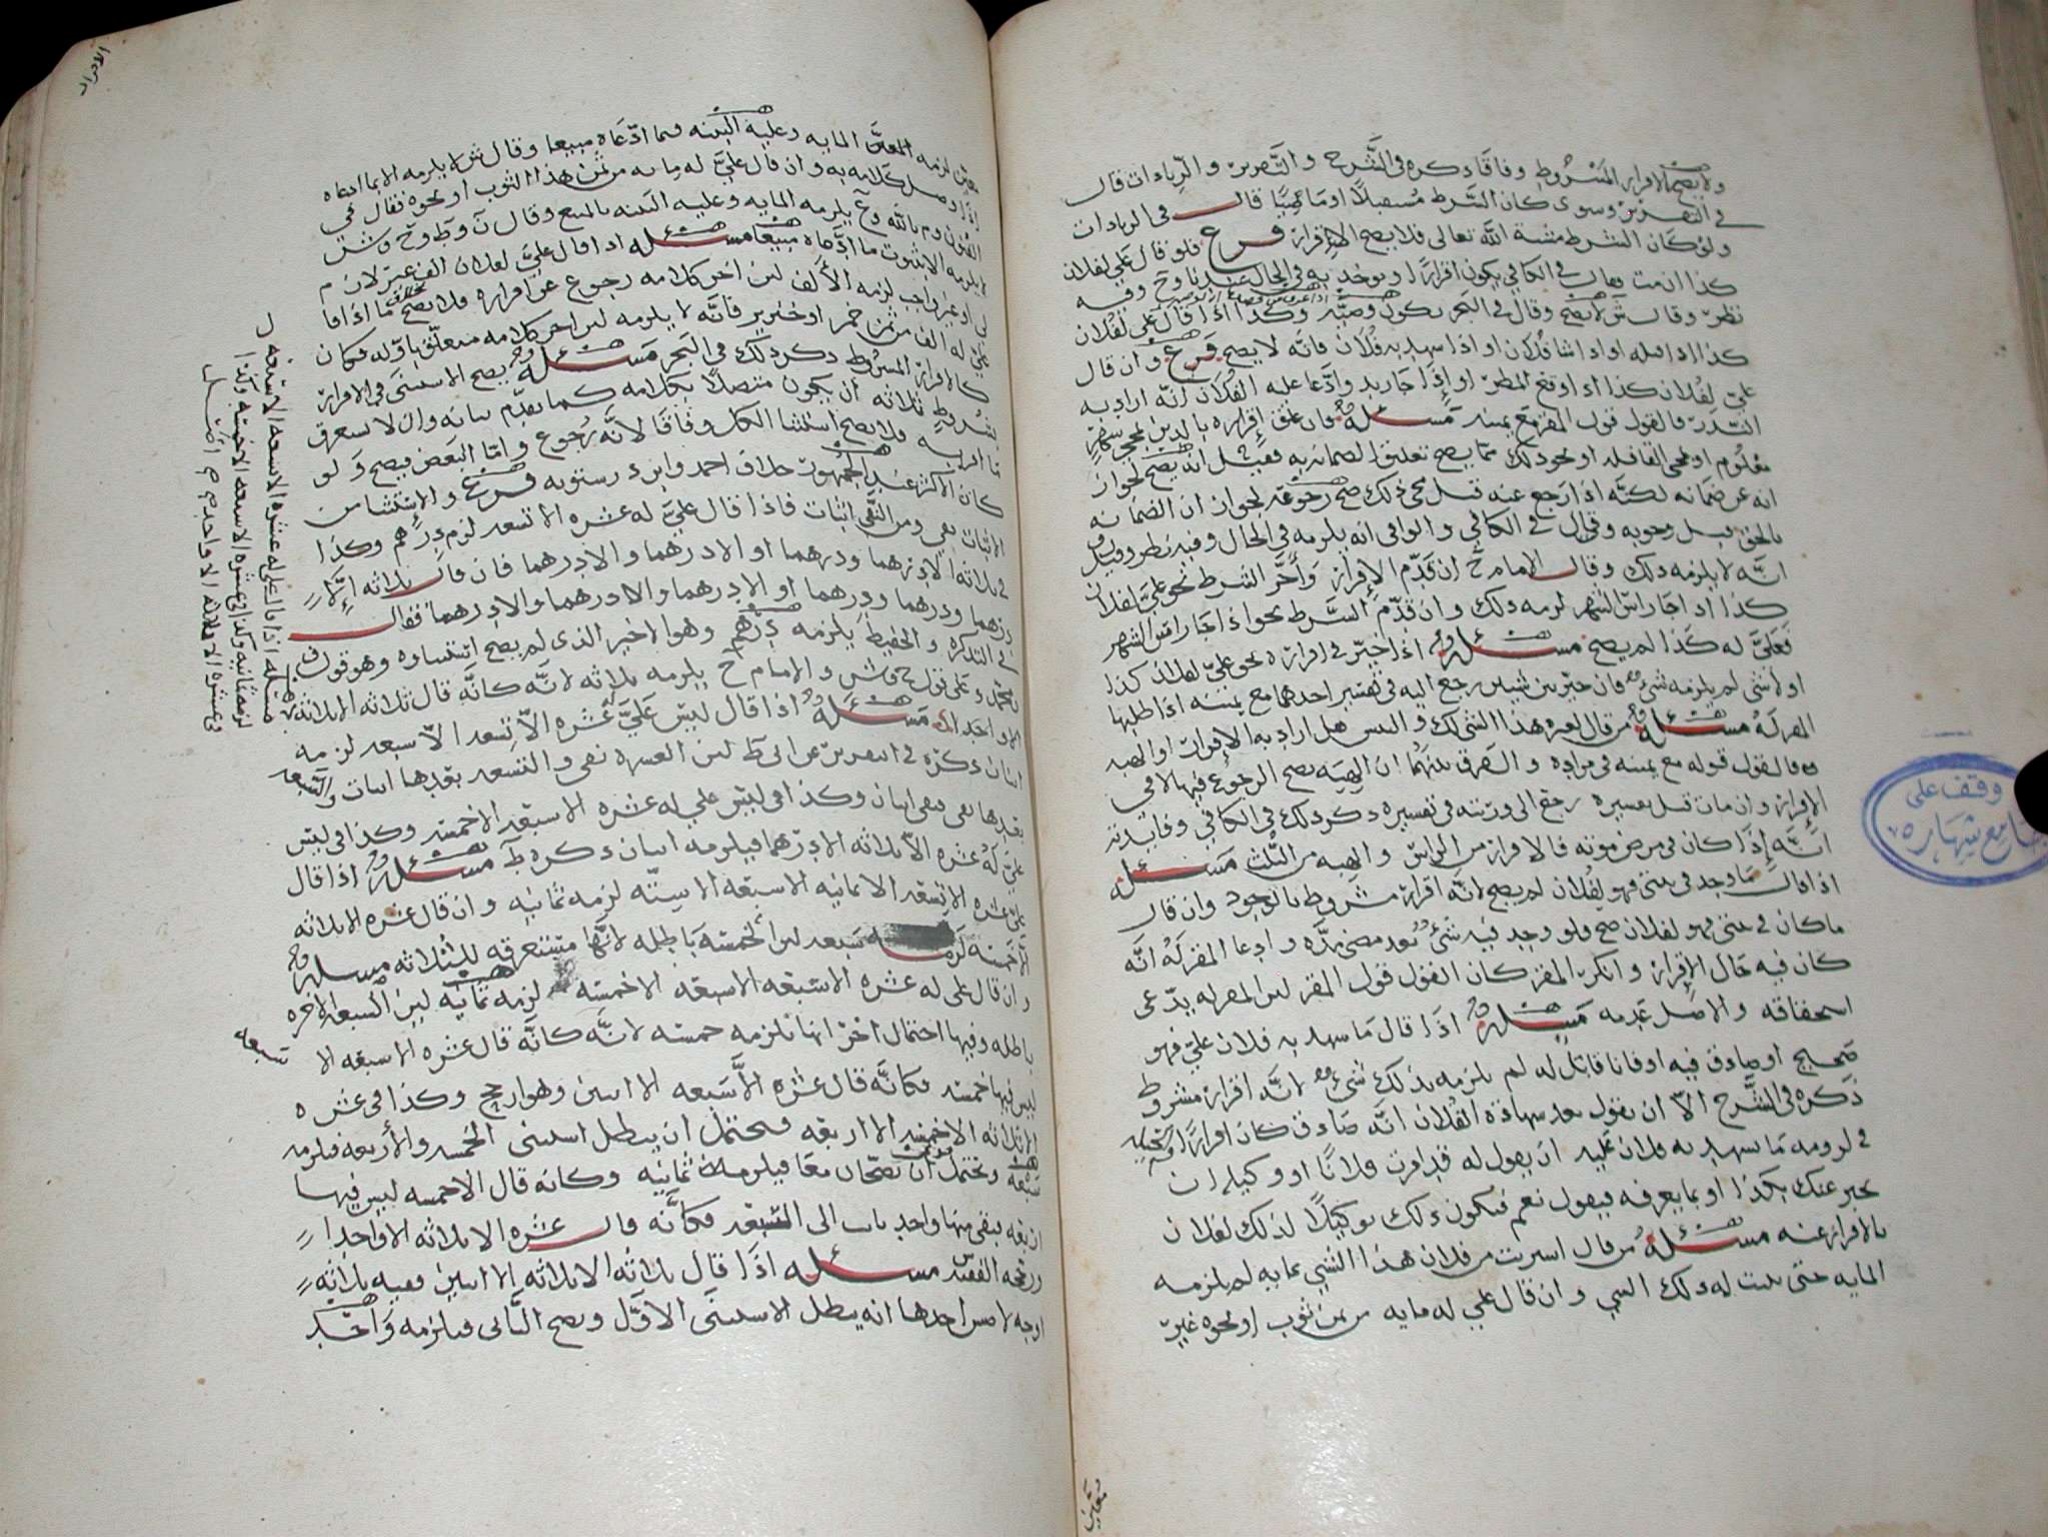 ولا يصح الاقرار المشروط وفاقا ذكره في الشرح والتقرير والزيادات قال
في التقرير وسوى كان الشرط مستقبلا او ماضيا قال في الزيادات
ولو كان الشرط مشية الله تعالى فلا يصح الاقرار فرع فلو قال علي لفلان
كذا ان مت فقال في الكافي يكون اقرارا ويوخذ به في الحال عندنا وح وفيه
نظر وقال ش لا يصح وقال في البحر يكون وصية وكذا اذا قال علي لفلان
كذا اذا قبله او اذا شا فلان او اذا شهد به فلان فانه لا يصح فرع وان قال
علي لفلان كذا اذا وقع المطر او اذا جا زيد وادعا عليه الفلان انه اراد به
النذر فالقول قول المقر مع يمينه مسئله وان علق اقراره بالدين بمجي سفر
معلوم او مجي القافله او نحو ذلك مما يصح تعليق الضمان به فقيل انه يصح لجواز
انه عن ضمانه لكنه اذا رجع عنه قبل مجي ذلك صح رجوعه لجواز ان الضمانه
بالحق قبل وجوبه وقال في الكافي والوافي انه يلزمه في الحال وفيه نظر وقيل
انه لا يلزمه ذلك وقال الامام ح ان قدم الاقرار واخر الشرط نحو علي لفلان
كذا اذا جا راس الشهر لزمه ذلك وان قدم الشرط نحو اذا جا راس الشهر
فعلي له كذا لم يصح مسئله اذا خير في اقراره نحو علي لفلان كذا
او لا شي لم يلزمه شي وان خير بين شيين رجع اليه في تفسير احدهما مع يمينه اذا طلبها
المقر له مسئله من قال لغيره هذا الشي لك والتبس هل اراد به الاقرار او الهبه
فالقول قوله مع يمينه في مراده والفرق بينهما ان الهبه يصح الرجوع فيها لا في
الاقرار وان مات قبل تفسيره رجع الى ورثته في تفسيره ذكر ذلك في الكافي وفايدته
انه اذا كان في مرض موته فالاقرار من الراس والهبه من الثلث مسئله
اذا قال ما وجد في بيتي فهو لفلان لم يصح لانه اقرار مشروط بالوجود وان قال
ما كان في بيتي فهو لفلان صح فلو وجد فيه شي بعد مضي مده وادعا المقر له انه
كان فيه حال الاقرار وانكر المقر كان القول قول المقر لان المقر له يدعي
استحقاقه والاصل عدمه مسئله اذا قال ما شهد به فلان علي فهو
صحيح او صادق فيه او فانا قابل له لم يلزمه بذلك شي لانه اقرار مشروط
ذكره في الشرح الا ان يقول بعد شهادة الفلان انه صادق كان اقرارا
في لزومه ما شهد به فلان عليه ان يقول له قد امرت فلانا او وكيله ان
يخبر عنك بكذا او بما يعرفه فيقول نعم فيكون ذلك توكيلا لذلك لفلان
بالاقرار عنه مسئله من قال اشتريت من فلان هذا الشي بمايه لم يلزمه
المايه حتى يثبت له ذلك الشي وان قال علي له مايه من ثمن ثوب او نحوه غير
معين
وقف على
جامع شهاره
الاقرار
معين لزمه المعين المايه وعليه البينه فيما ادعاه مبيعا وقال ش لا يلزمه الا بما ادعاه
اذا وصل كلامه به وان قال علي له مايه من ثمن هذا الثوب او نحوه فقال في
يلزمه المايه وعليه البينه بالمبيع وقال ن وط وح وش
لا يلزمه الا بثبوت ما ادعاه مبيعا مسئله اذا قال علي لفلان الف غير لازم
لي او غير واجب لزمه الالف لان اخر كلامه رجوع عن اقراره فلا يصح بخلاف ما اذا قال
علي له الف من ثمن خمر او خنزير فانه لا يلزمه لان اخر كلامه متعلق باوله فكان
كالاقرار المشروط ذكر ذلك في البحر مسئله يصح الاستثنى في الاقرار
بشروط ثلاثه ان يكون متصلا بكلامه كما تقدم بيانه وان لا يستغرق
فلا يصح استثنا الكل وفاقا لانه رجوع واما البعض فيصح ولو
كان الاكثر عند الجمهور خلاف احمد وابن درستويه فرع والاستثنا من
الاثبات نفي ومن النفي اثبات فاذا قال علي له عشره الا تسعه لزم درهم وكذا
في ثلاثه الا درهما ودرهما او الا درهما والا درهما فان قال ثلاثه الا
درهما ودرهما ودرهما او الا درهما والا درهما والا درهما فقال
في التذكره والحفيظ يلزمه درهم وهو الاخير الذي لم يصح استثناوه وهو قول ف
ومحمد وعلى قول ح وش والامام ح يلزمه ثلاثه لانه كانه قال ثلاثه الا ثلاثه
مسئله اذا قال ليس علي عشره الا تسعه الا سبعه لزمه
اثنان ذكره في التقرير عن ابي ط لان العشره نفي والتسعه بعدها اثبات والسبعه
بعدها نفي فبقي اثنان وكذا في ليس علي له عشره الا سبعه الا خمسه وكذا في ليس
علي له عشره الا ثلاثه الا درهما فيلزمه اثنان ذكره ط مسئله اذا قال
علي عشره الا تسعه الا ثمانيه الا سبعه الا سته لزمه ثمانيه وان قال عشره الا ثلاثه
الا خمسه لزمه سبعه لان الخمسه باطله لانها مستغرقه للثلاثه مسئله
وان قال علي له عشره الا سبعه الا سبعه الا خمسه لزمه ثمانيه لان السبعه الاخره
باطله وفيها احتمال اخر انها تلزمه خمسه لانه كانه قال عشره الا سبعه الا
سبعه
ليس فيها خمسه فكانه قال عشره الا سبعه الا اثنين وهو ارجح وكذا في عشره
الا ثلاثه الا خمسه الا اربعه فيحتمل ان يبطل استثنى الخمسه والاربعه فيلزمه
سبعه ويحتمل ان يصحان معا فيلزمه ثمانيه وكانه قال الا خمسه ليس فيها
اربعه يبقى منها واحد فكانه قال عشره الا ثلاثه الا واحدا
ورجحه الفقيه س مسئله اذا قال ثلاثه الا ثلاثه الا اثنين ففيه ثلاثه
اوجه احدها انه يبطل الاستثنى الاول ويصح الثاني فيلزمه واحد
مسئله اذا قال علي له عشره الا تسعه الا تسعه